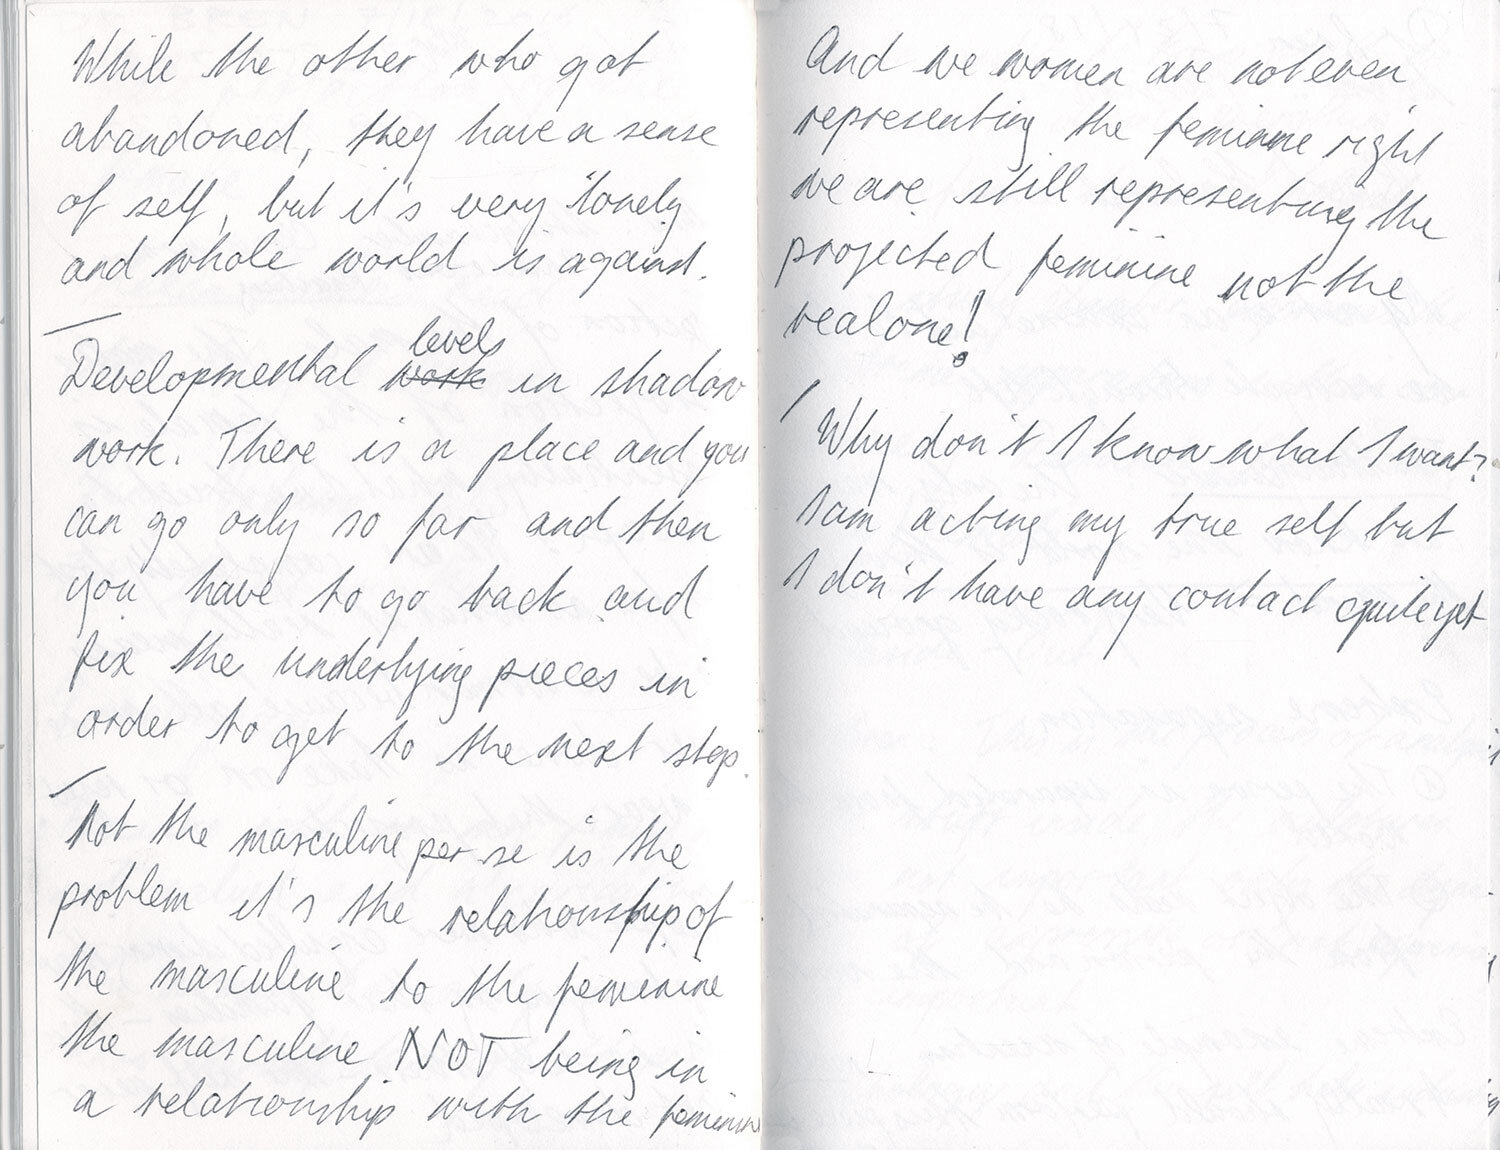 While the other who got
abandoned, they have a sense
of self, but it's very lonely
and whole world is against.
Developmental levels work in shadow
work. There is a place and you
can go only so far and then
you have to go back and
fix the underlying pieces in
order to get to the next step.
Not the masculine per se is the
problem it's the relationship of
the masculine to the feminine
the masculine NOT being in
a relationship with the feminine
And we women are not even
representing the feminine right
we are still representing the
projected feminine not the
real one!
Why don't I know what I want?
I am acting my true self but
I don't have any contact quite yet